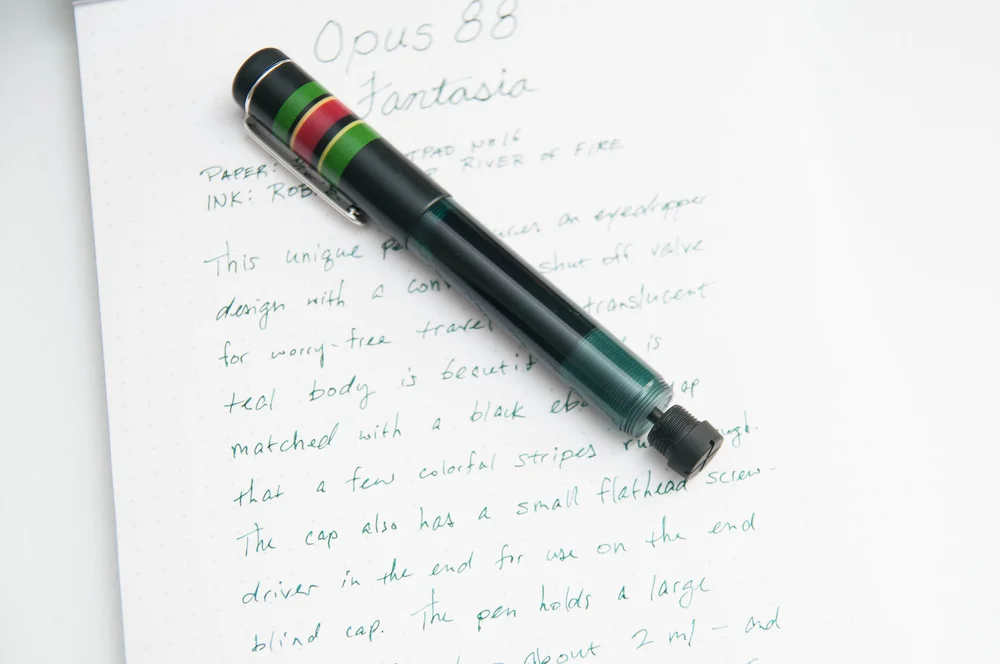 Opus 88
Fantasia
PAPER: No 16
INK: ROB RIVER OF FIRE
This unique an eyedropper
design with a shut off valve
for worry-free travel translucent
teal body is is
matched with a black
that a few colorful stripes
The cap also has a small flathead screw-
driver in the end for use on the end
blind cap. The pen holds a large
about 2 ml - and